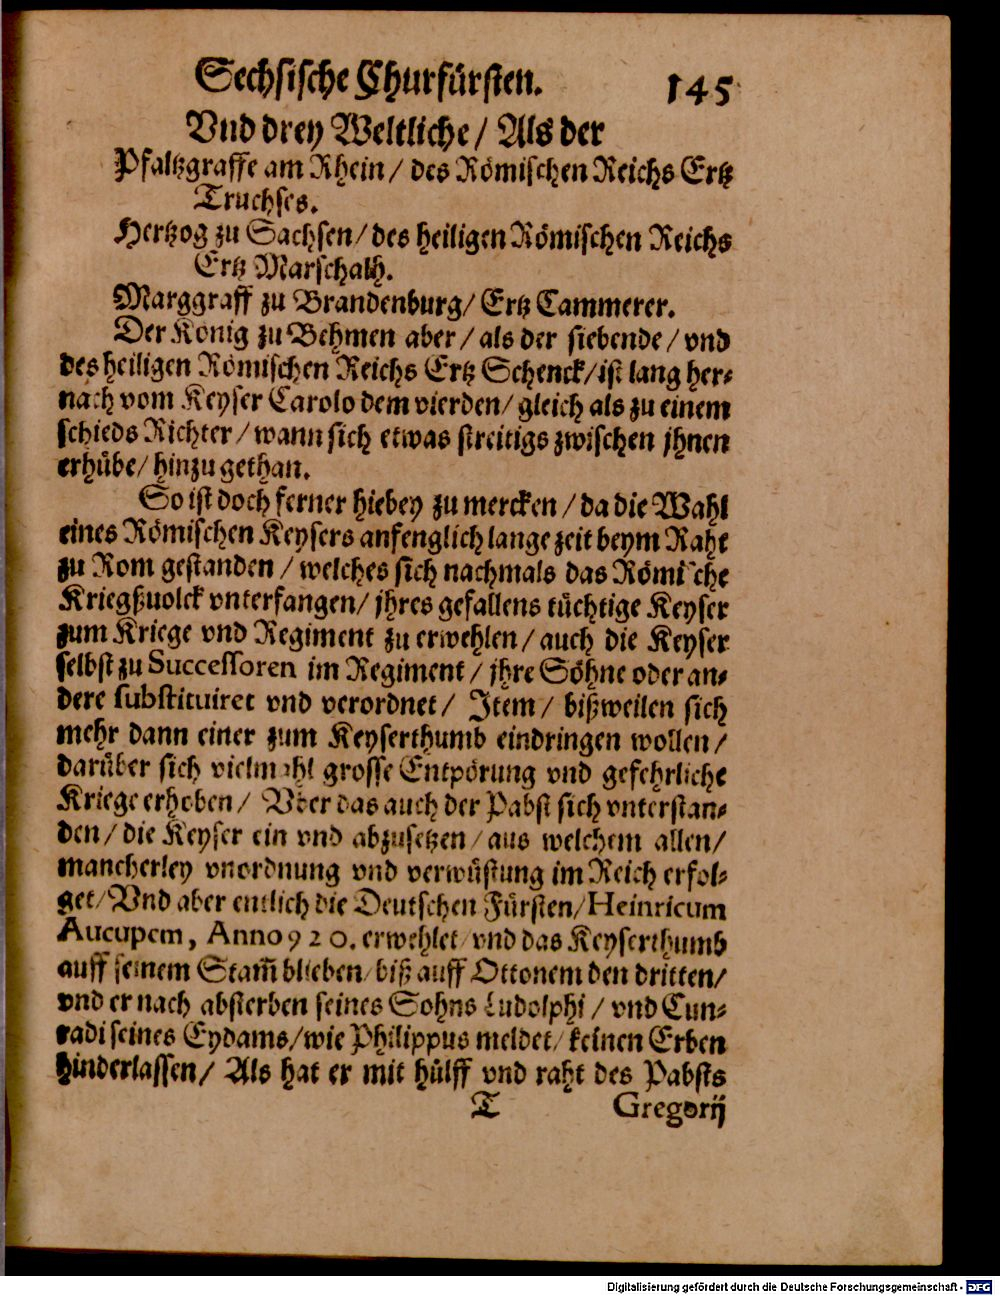 Sechsische Churfürsten. 145
Vnd drey Weltliche / Als der
Pfaltzgraffe am Rhein / des Römischen Reichs Ertz
Truchses.
Hertzog zu Sachsen / des heiligen Römischen Reichs
Ertz Marschalh.
Marggraff zu Brandenburg / Ertz Cammerer.
Der König zu Behmen aber / als der siebende / vnd
des heiligen Römischen Reichs Ertz Schenck / ist lang her-
nach vom Keyser Carolo dem vierden / gleich als zu einem
schieds Richter / wann sich etwas streitigs zwischen jhnen
erhübe / hinzu gethan.
So ist doch ferner hiebey zu mercken / da die Wahl
eines Römischen Keysers anfenglich lange zeit beym Raht
zu Rom gestanden / welches sich nachmals das Römische
Kriegßuolck vnterfangen / jhres gefallens tüchtige Keyser
zum Kriege vnd Regiment zu erwehlen / auch die Keyser
selbst zu Successoren im Regiment / jhre Söhne oder an-
dere substituiret vnd verordnet / Item / bißweilen sich
mehr dann einer zum Keyserthumb eindringen wollen /
darüber sich vielmahl grosse Entpörung vnd gefehrliche
Kriege erhoben / Vber das auch der Pabst sich vnterstan-
den / die Keyser ein vnd abzusetzen / aus welchem allen /
mancherley vnordnung vnd verwüstung im Reich erfol-
get / Vnd aber entlich die Deutschen Fürsten / Heinricum
Aucupem, Anno 920. erwehlet / vnd das Keyserthumb
auff seinem Stam̃ blieben / biß auff Ottonem den dritten /
vnd er nach absterben seines Sohns Ludolphi / vnd Cun-
radi seines Eydams / wie Philippus meldet / keinen Erben
hinderlassen / Als hat er mit hülff vnd raht des Pabsts
T Gregorij
Digitalisierung gefördert durch die Deutsche Forschungsgemeinschaft - DFG